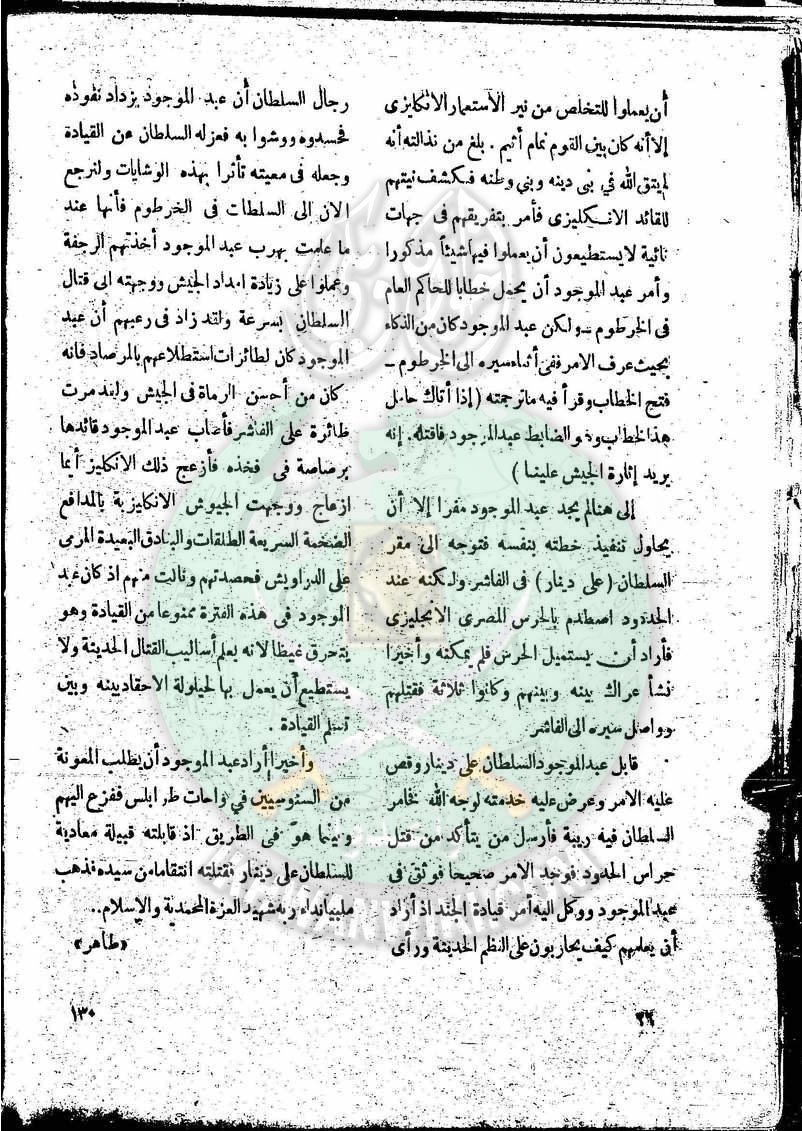 أن يعملوا للتخلص من نير الاستعمار الانكليزى
إلا أنه كان بين القوم نمام أثيم . بلغ من نذالته أنه
لم يتق الله في بنى دينه وبني وطنه فكشف نيتهم
للقائد الانكليزى فأمر بتفريقهم فى جهات
نائية لا يستطيعون أن يعملوا فيها شيئاً مذكورا
وأمر عبد الموجود أن يحمل خطابا للحاكم العام
فى الخرطوم ــ ولكن عبد الموجود كان من الذكاء
بحيث عرف الامر ففى أثناء سيره الى الخرطوم ــ
فتح الخطاب وقرأ فيه ما ترجمته ( إذا أتاك حامل
هذا الخطاب وهو الضابط عبد الموجود فاقتله . إنه
يريد إثارة الجيش علينا )
إلى هنا لم يجد عبد الموجود مفرا إلا أن
يحاول تنفيذ خطته بنفسه فتوجه الى مقر
السلطان ( على دينار ) فى الفاشر ولكنه عند
الحدود اصطدم بالحرس المصرى الانجليزى
فأراد أن يستميل الحرس فلم يمكنه وأخيرا
نشأ عراك بينه وبينهم وكانوا ثلاثة فقتلهم
وواصل سيره الى الفاشر
قابل عبد الموجود السلطان على دينار وقص
عليه الامر وعرض عليه خدمته لوجه الله فخامر
السلطان فيه ريبة فأرسل من يتأكد من قتل
حراس الحدود فوجد الامر صحيحا فوثق فى
عبد الموجود ووكل اليه أمر قيادة الجند اذ أراد
أن يعلمهم كيف يحاربون على النظم الحديثة ورأى
رجال السلطان أن عبد الموجود يزداد نفوذه
فحسدوه ووشوا به فعزله السلطان عن القيادة
وجعله فى معيته تأثرا بهذه الوشايات ولنرجع
الان الى السلطات فى الخرطوم فأنها عند
ما علمت بهرب عبد الموجود أخذتهم الرجفة
وعملوا على زيادة امداد الجيش ووجهته الى قتال
السلطان بسرعة ولقد زاد فى رعبهم أن عبد
الموجود كان لطائرات استطلاعهم بالمرصاد فانه
كان من أحسن الرماة فى الجيش ولقد مرت
طائرة على الفاشر فأصاب عبد الموجود قائدها
برصاصة فى فخذه فأزعج ذلك الانكليز أيما
ازعاج ووجهت الجيوش الانكليزية بالمدافع
الضخمة السريعة الطلقات والبنادق البعيدة المرمى
على الدراويش فحصدتهم ونالت منهم اذ كان عبد
الموجود فى هذه الفترة ممنوعا من القيادة وهو
يتحرق غيظا لانه يعلم أساليب القتال الحديثة ولا
يستطيع أن يعمل بها لحيلولة الاحقاد بينه وبين
تسلم القيادة .
وأخيرا أراد عبد الموجود أن يطلب المعونة
من السنوسيين في واحات طرابلس ففزع اليهم
وبينما هو فى الطريق اذ قابلته قبيلة معادية
للسلطان على دينار فقتلته انتقاما من سيده فذهب
ملبيا نداء ربه شهيد العزة المحمدية والاسلام..
«طاهر»
٢٦
١٣٠
IKHWANWIKI.COM